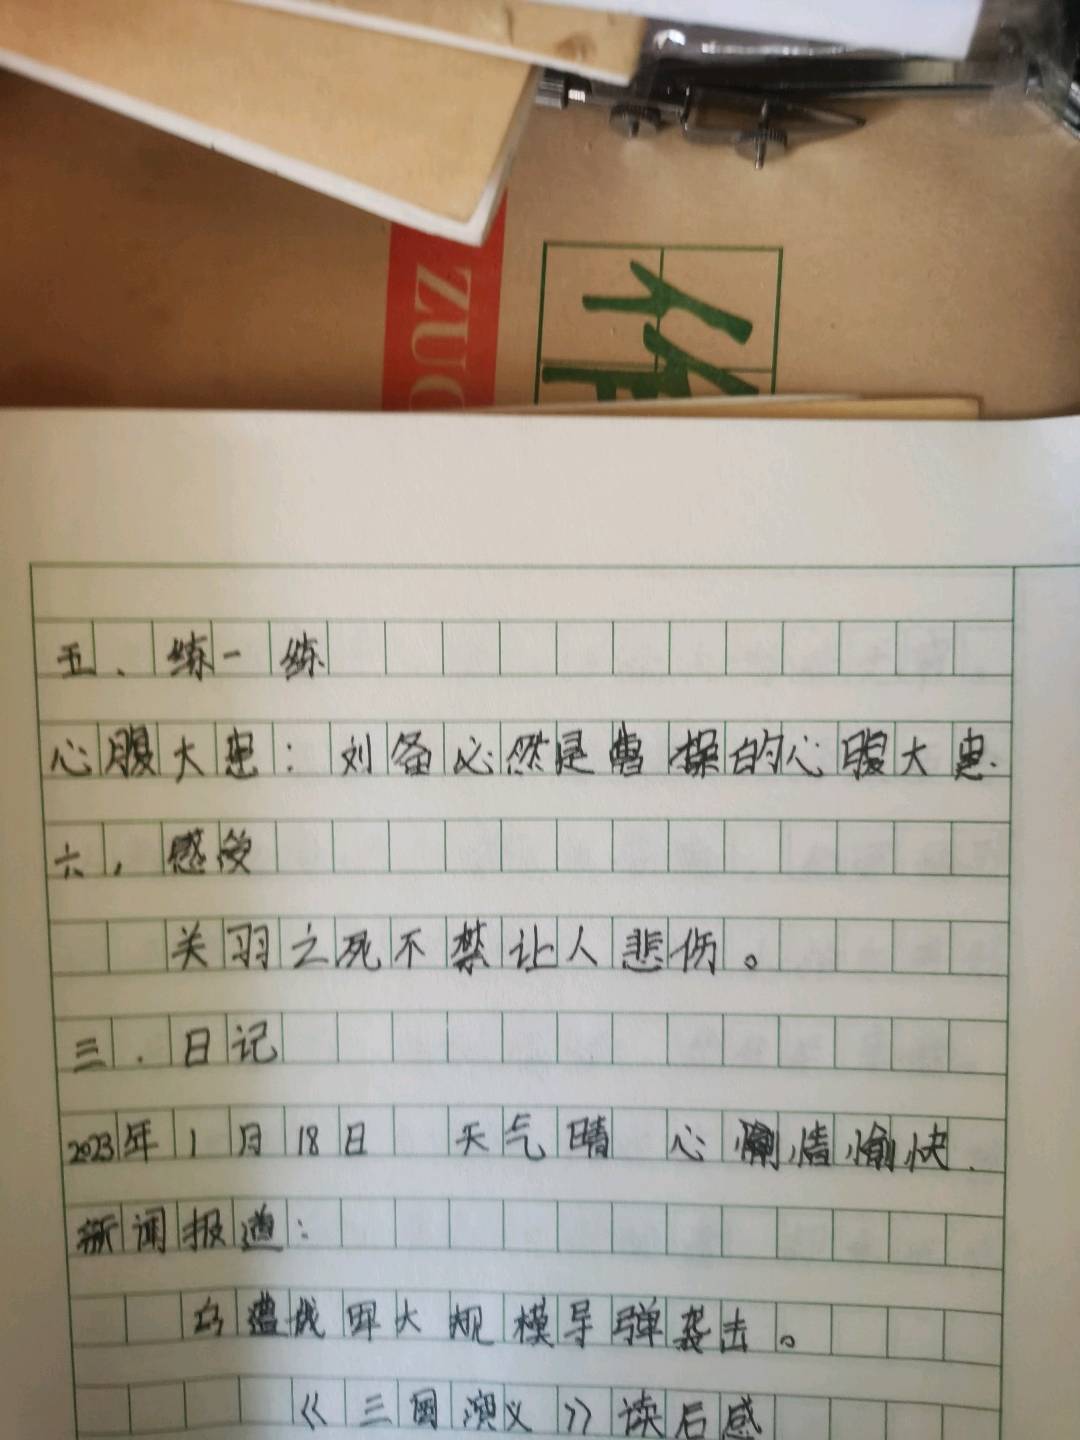 ZUO
作
五、练一练
心腹大患：刘备必然是曹操的心腹大患.
六，感受
关羽之死不禁让人悲伤。
三．日记
2023年1月18日 天气晴 心情愉快.
新闻报道：
乌遭俄军大规模导弹袭击。
《三国演义》读后感